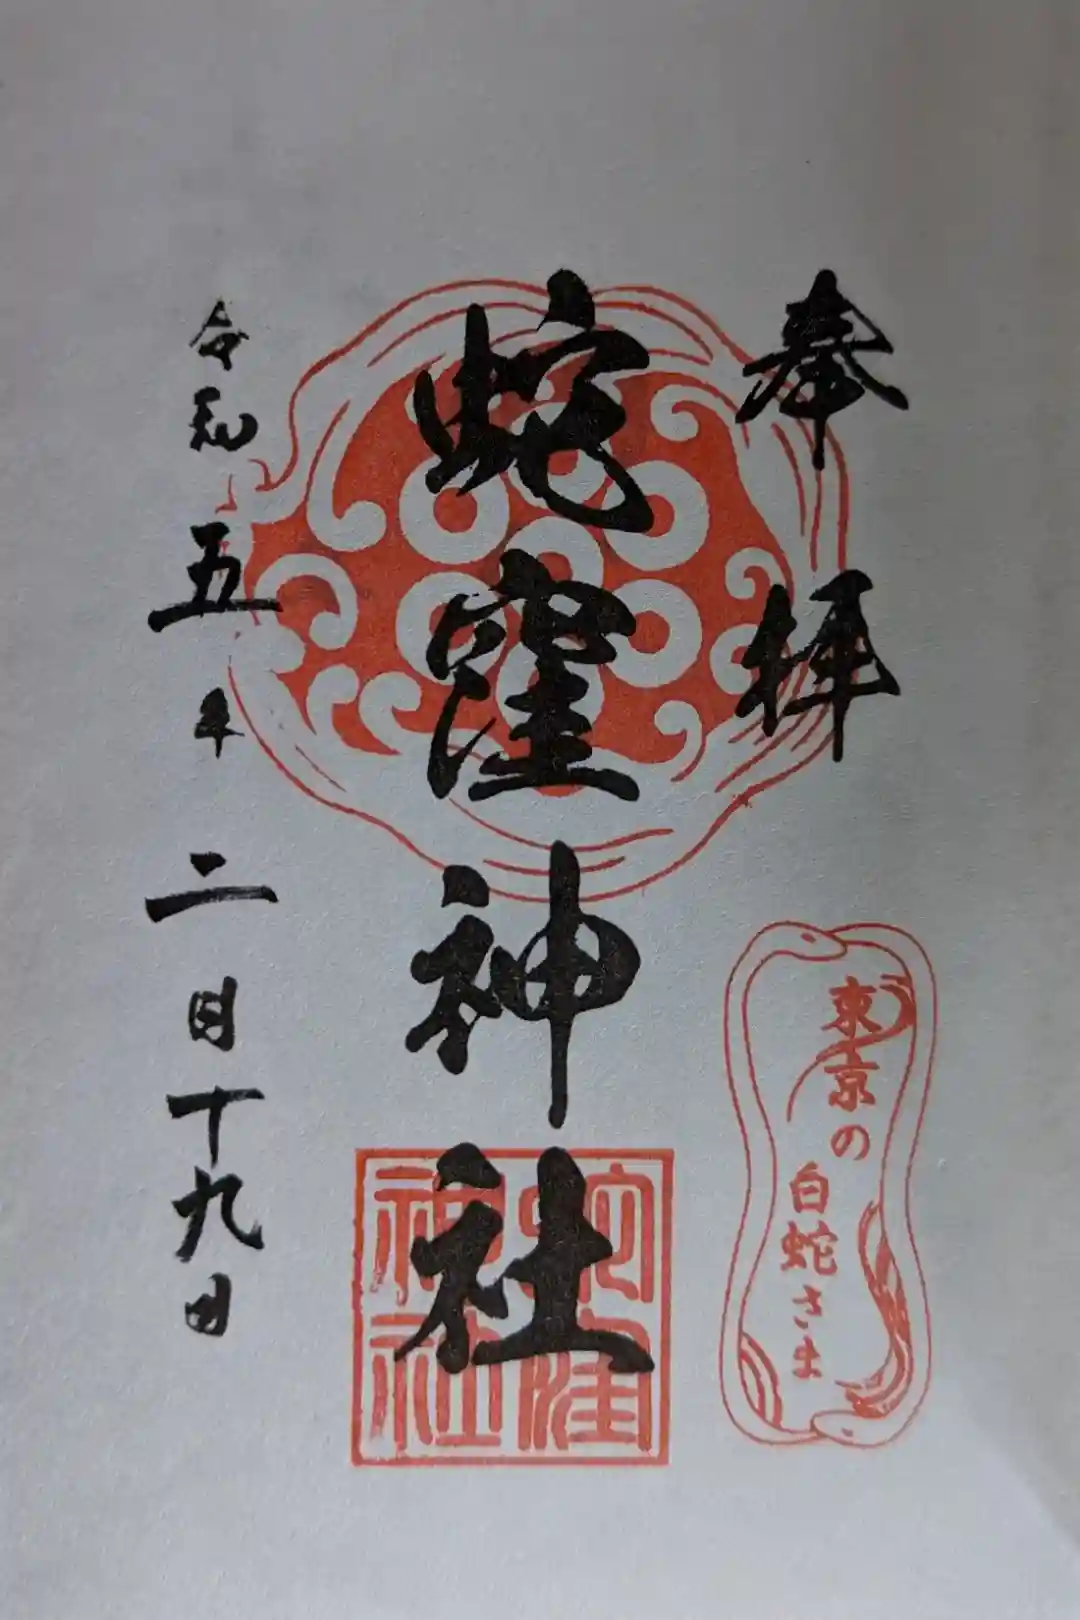 奉拝
蛇窪神社
令和五年二月十九日
東京の
白蛇さま
蛇窪
神社